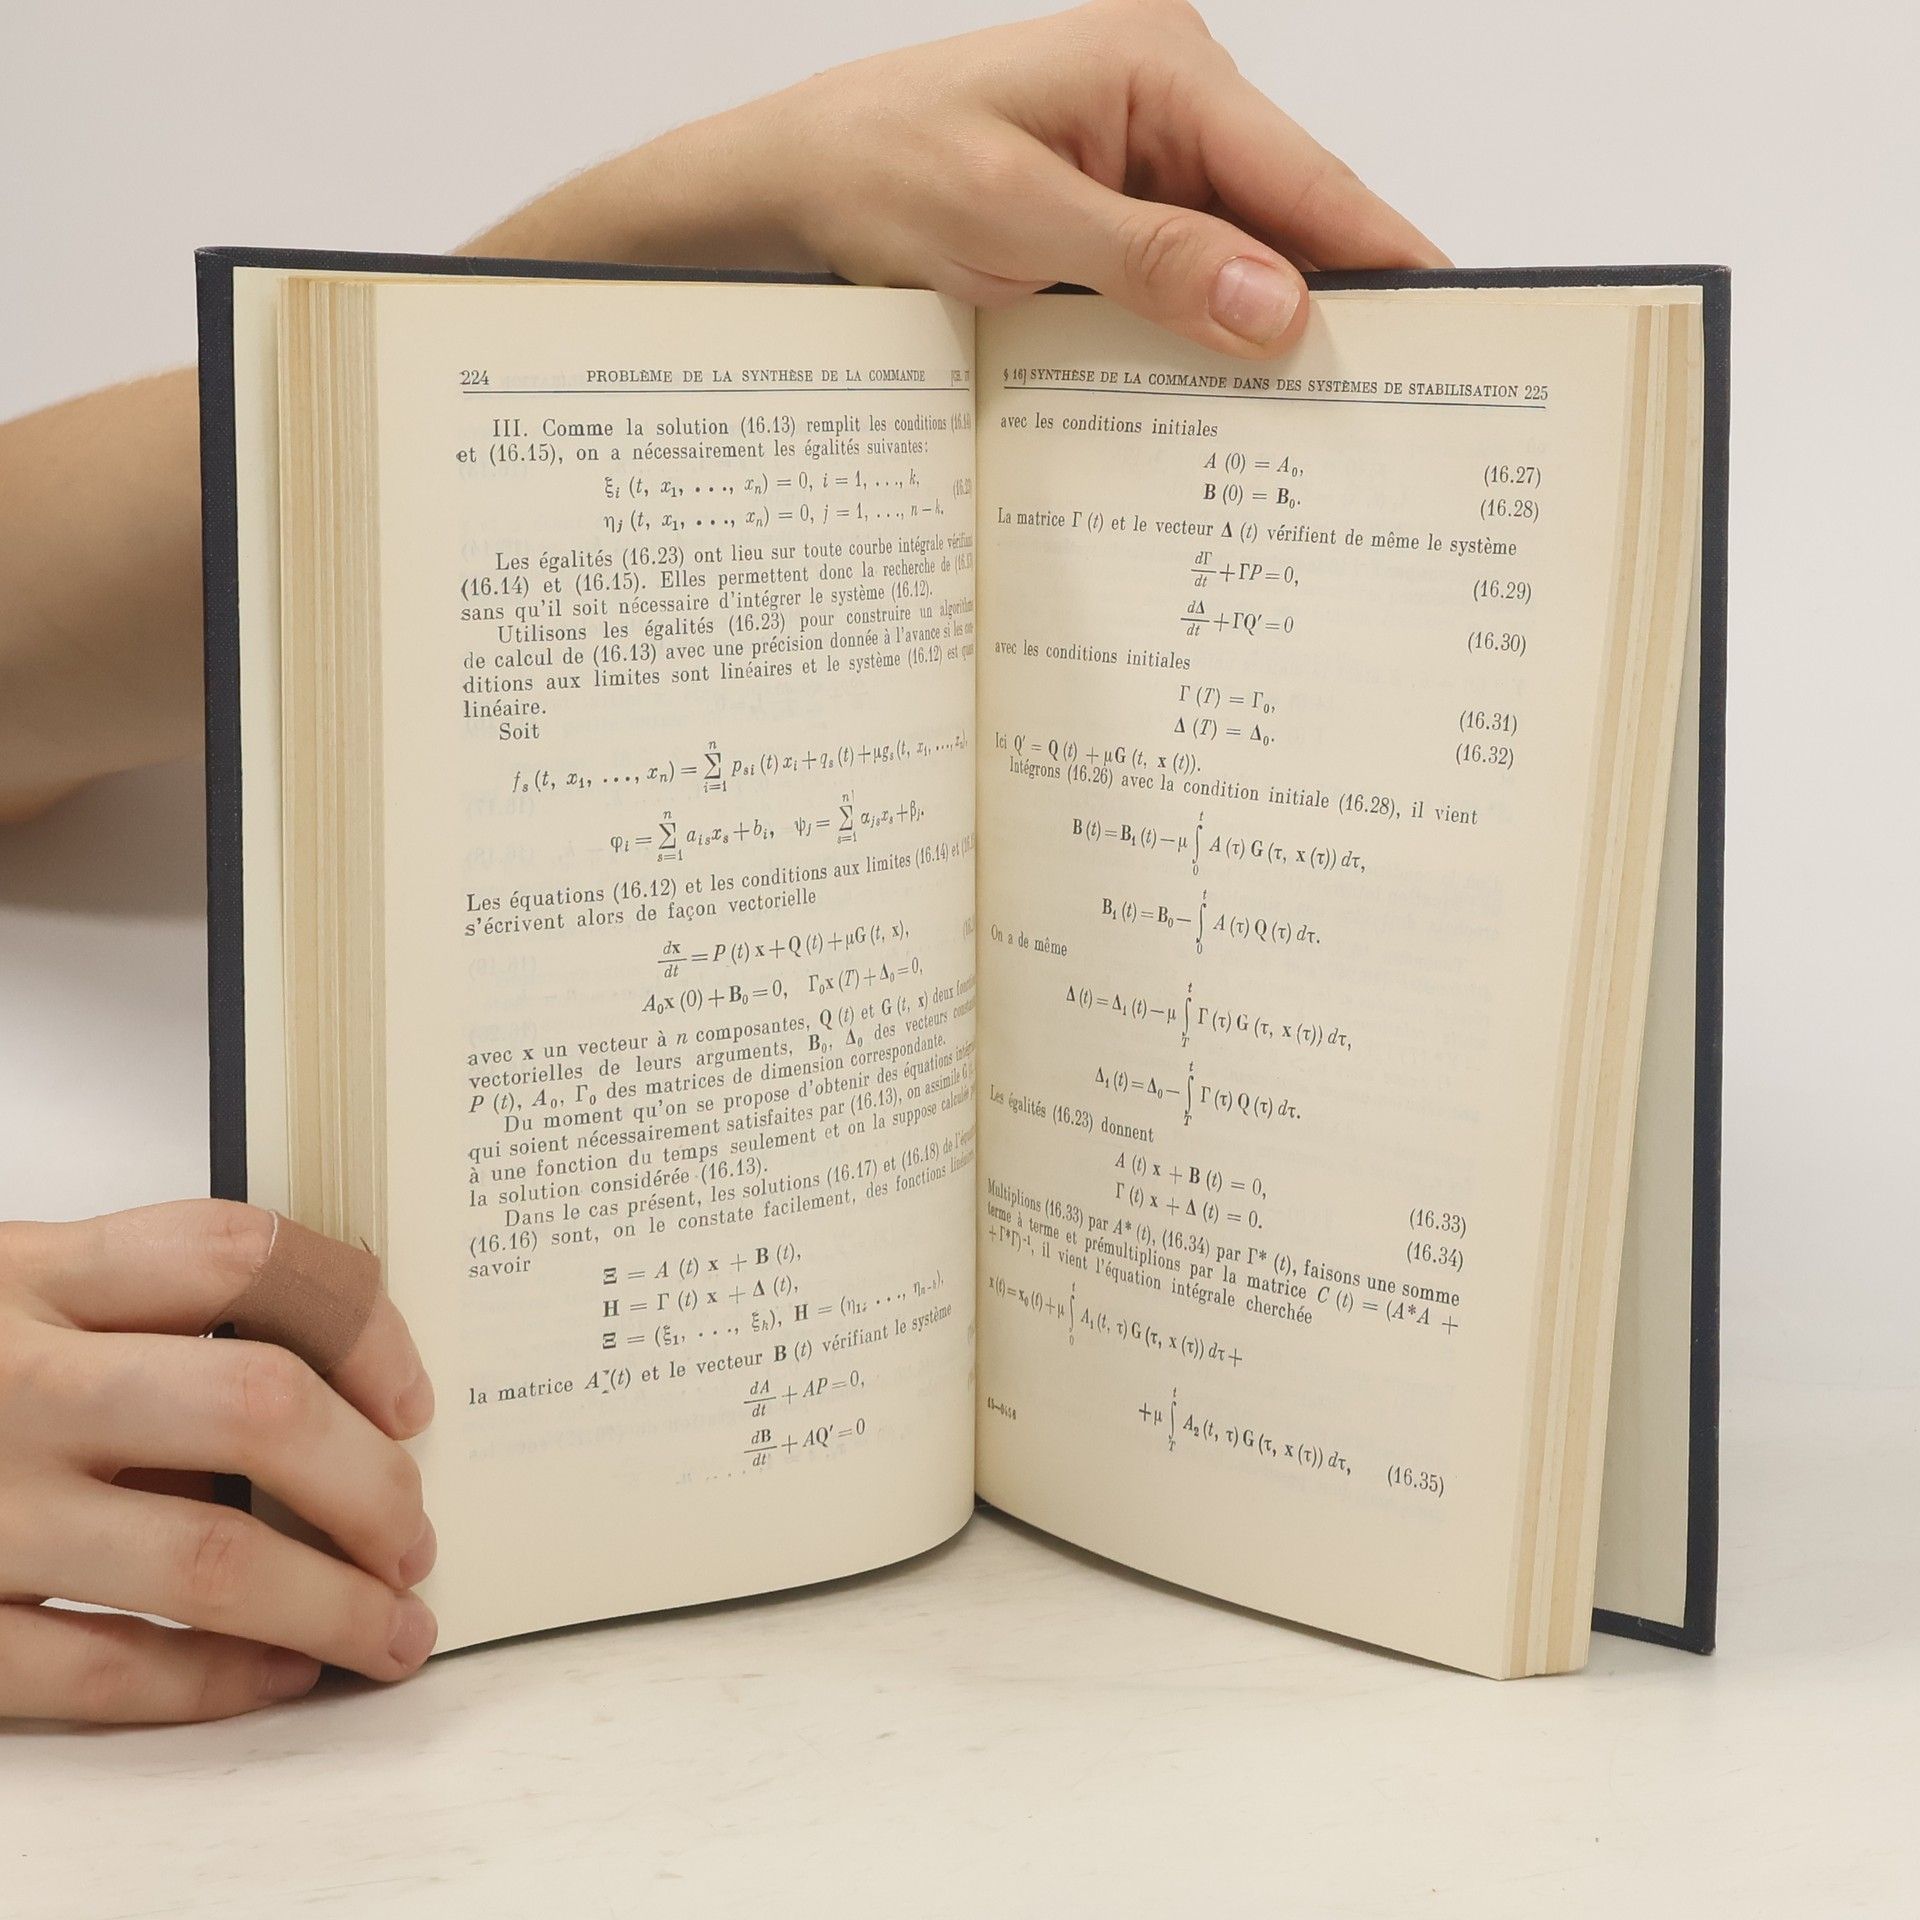 224 PROBLÈME DE LA SYNTHÈSE DE LA COMMANDE [CH. IV
III. Comme la solution (16.13) remplit les conditions (16.14)
et (16.15), on a nécessairement les égalités suivantes:
ξi (t, x1, ..., xn) = 0, i = 1, ..., k,
ηj (t, x1, ..., xn) = 0, j = 1, ..., n − k.
Les égalités (16.23) ont lieu sur toute courbe intégrale
(16.14) et (16.15). Elles permettent donc la recherche de
sans qu'il soit nécessaire d'intégrer le système (16.12).
Utilisons les égalités (16.23) pour construire un
de calcul de (16.13) avec une précision donnée à l'avance si les
ditions aux limites sont linéaires et le système (16.12) est
linéaire.
Soit
fs (t, x1, ..., xn) = Σ_{i=1}^{n} psi (t) xi + qs (t) + μgs (t, x1, ..., xn),
φi = Σ_{s=1}^{n} aisxs + bi, ψj = Σ_{s=1}^{n} αjsxs + βj.
Les équations (16.12) et les conditions aux limites (16.14) et
s'écrivent alors de façon vectorielle
dx/dt = P (t) x + Q (t) + μG (t, x),
A0x (0) + B0 = 0, Γ0x (T) + Δ0 = 0,
avec x un vecteur à n composantes, Q (t) et G (t, x) deux
vectorielles de leurs arguments, B0, Δ0 des vecteurs
P (t), A0, Γ0 des matrices de dimension correspondante.
Du moment qu'on se propose d'obtenir des équations
qui soient nécessairement satisfaites par (16.13), on assimile
à une fonction du temps seulement et on la suppose
la solution considérée (16.13).
Dans le cas présent, les solutions (16.17) et (16.18) de
(16.16) sont, on le constate facilement, des fonctions
savoir
Ξ = A (t) x + B (t),
H = Γ (t) x + Δ (t),
Ξ = (ξ1, ..., ξk), H = (η1, ..., ηn−k),
la matrice A (t) et le vecteur B (t) vérifiant le système
dA/dt + AP = 0,
dB/dt + AQ′ = 0
§ 16] SYNTHÈSE DE LA COMMANDE DANS DES SYSTÈMES DE STABILISATION 225
avec les conditions initiales
A (0) = A0, (16.27)
B (0) = B0. (16.28)
La matrice Γ (t) et le vecteur Δ (t) vérifient de même le système
dΓ/dt + ΓP = 0, (16.29)
dΔ/dt + ΓQ′ = 0 (16.30)
avec les conditions initiales
Γ (T) = Γ0, (16.31)
Δ (T) = Δ0. (16.32)
Ici Q′ = Q (t) + μG (t, x (t)).
Intégrons (16.26) avec la condition initiale (16.28), il vient
B (t) = B1 (t) − μ ∫_0^t A (τ) G (τ, x (τ)) dτ,
B1 (t) = B0 − ∫_0^t A (τ) Q (τ) dτ.
On a de même
Δ (t) = Δ1 (t) − μ ∫_T^t Γ (τ) G (τ, x (τ)) dτ,
Δ1 (t) = Δ0 − ∫_T^t Γ (τ) Q (τ) dτ.
Les égalités (16.23) donnent
A (t) x + B (t) = 0, (16.33)
Γ (t) x + Δ (t) = 0. (16.34)
Multiplions (16.33) par A* (t), (16.34) par Γ* (t), faisons une somme
terme à terme et prémultiplions par la matrice C (t) = (A*A +
+ Γ*Γ)⁻¹, il vient l'équation intégrale cherchée
x (t) = x0 (t) + μ ∫_0^t A1 (t, τ) G (τ, x (τ)) dτ +
+ μ ∫_T^t A2 (t, τ) G (τ, x (τ)) dτ, (16.35)
15—0456